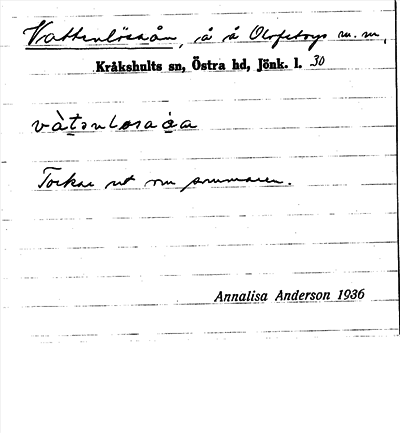 Vattenlösaån, å å Olofstorps m. m.,
Kråkshults sn, Östra hd, Jönk. l. 30
Torkar ut om sommaren.
Annalisa Anderson 1936